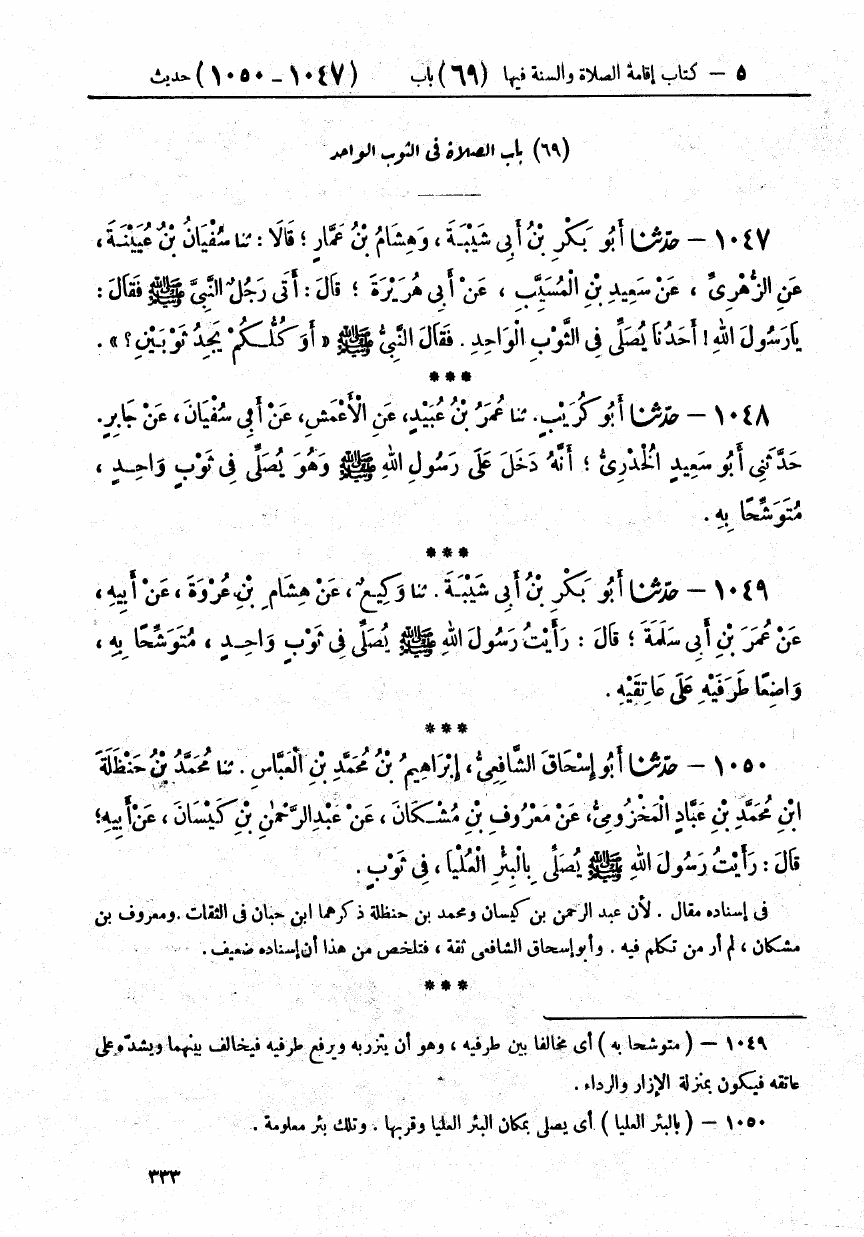 ٥ – كتاب إقامة الصلاة والسنة فيها (٦٩) باب (١٠٤٧ – ١٠٥٠) حديث
(٦٩) باب الصلاة فى الثوب الواحد
١٠٤٧ – حدّثنا أَبُو بَكْرِ بْنُ أَبِى شَيْبَةَ ، وَهِشَامُ بْنُ عَمَّارٍ ؛ قَالَا : ثنا سُفْيَانُ بْنُ عُيَيْنَةَ ،
عَنِ الزُّهْرِىِّ ، عَنْ سَعِيدِ بْنِ الْمُسَيَّبِ ، عَنْ أَبِى هُرَيْرَةَ ؛ قَالَ : أَتَى رَجُلٌ النَّبِىَّ ﷺ فَقَالَ :
يَا رَسُولَ اللهِ ! أَحَدُنَا يُصَلِّى فِى الثَّوْبِ الْوَاحِدِ . فَقَالَ النَّبِىُّ ﷺ « أَوَ كُلُّكُمْ يَجِدُ ثَوْبَيْنِ ؟ » .
***
١٠٤٨ – حدّثنا أَبُو كُرَيْبٍ . ثنا عُمَرُ بْنُ عُبَيْدٍ، عَنِ الْأَعْمَشِ، عَنْ أَبِى سُفْيَانَ ، عَنْ جَابِرٍ.
حَدَّثَنِى أَبُو سَعِيدٍ الْخُدْرِىُّ ؛ أَنَّهُ دَخَلَ عَلَى رَسُولِ اللهِ ﷺ وَهُوَ يُصَلِّى فِى ثَوْبٍ وَاحِدٍ ،
مُتَوَشِّحًا بِهِ .
***
١٠٤٩ – حدّثنا أَبُو بَكْرِ بْنُ أَبِى شَيْبَةَ . ثنا وَكِيعٌ ، عَنْ هِشَامِ بْنِ عُرْوَةَ ، عَنْ أَبِيهِ ،
عَنْ عُمَرَ بْنِ أَبِى سَلَمَةَ ؛ قَالَ : رَأَيْتُ رَسُولَ اللهِ ﷺ يُصَلِّى فِى ثَوْبٍ وَاحِدٍ ، مُتَوَشِّحًا بِهِ ،
وَاضِعًا طَرَفَيْهِ عَلَى عَاتِقَيْهِ .
***
١٠٥٠ – حدّثنا أَبُو إِسْحَاقَ الشَّافِعِىُّ ، إِبْرَاهِيمُ بْنُ مُحَمَّدِ بْنِ الْعَبَّاسِ . ثنا مُحَمَّدُ بْنُ حَنْظَلَةَ
ابْنِ مُحَمَّدِ بْنِ عَبَّادٍ الْمَخْزُومِىُّ، عَنْ مَعْرُوفِ بْنِ مُشْكَانَ ، عَنْ عَبْدِ الرَّحْمٰنِ بْنِ كَيْسَانَ ، عَنْ أَبِيهِ؛
قَالَ : رَأَيْتُ رَسُولَ اللهِ ﷺ يُصَلِّى بِالْبِئْرِ الْعُلْيَا ، فِى ثَوْبٍ .
فى إسناده مقال . لأن عبد الرحمن بن كيسان ومحمد بن حنظلة ذكرهما ابن حبان فى الثقات . ومعروف بن
مشكان ، لم أر من تكلم فيه . وأبو إسحاق الشافعى ثقة ، فتلخص من هذا أن إسناده ضعيف .
***
١٠٤٩ – ( متوشحا به ) أى مخالفا بين طرفيه ، وهو أن يتزر به ويرفع طرفيه فيخالف بينهما ويشدّه على
عاتقه فيكون بمنزلة الإزار والرداء .
١٠٥٠ – ( بالبئر العليا ) أى يصلى بمكان البئر العليا وقربها . وتلك بئر معلومة .
٣٣٣